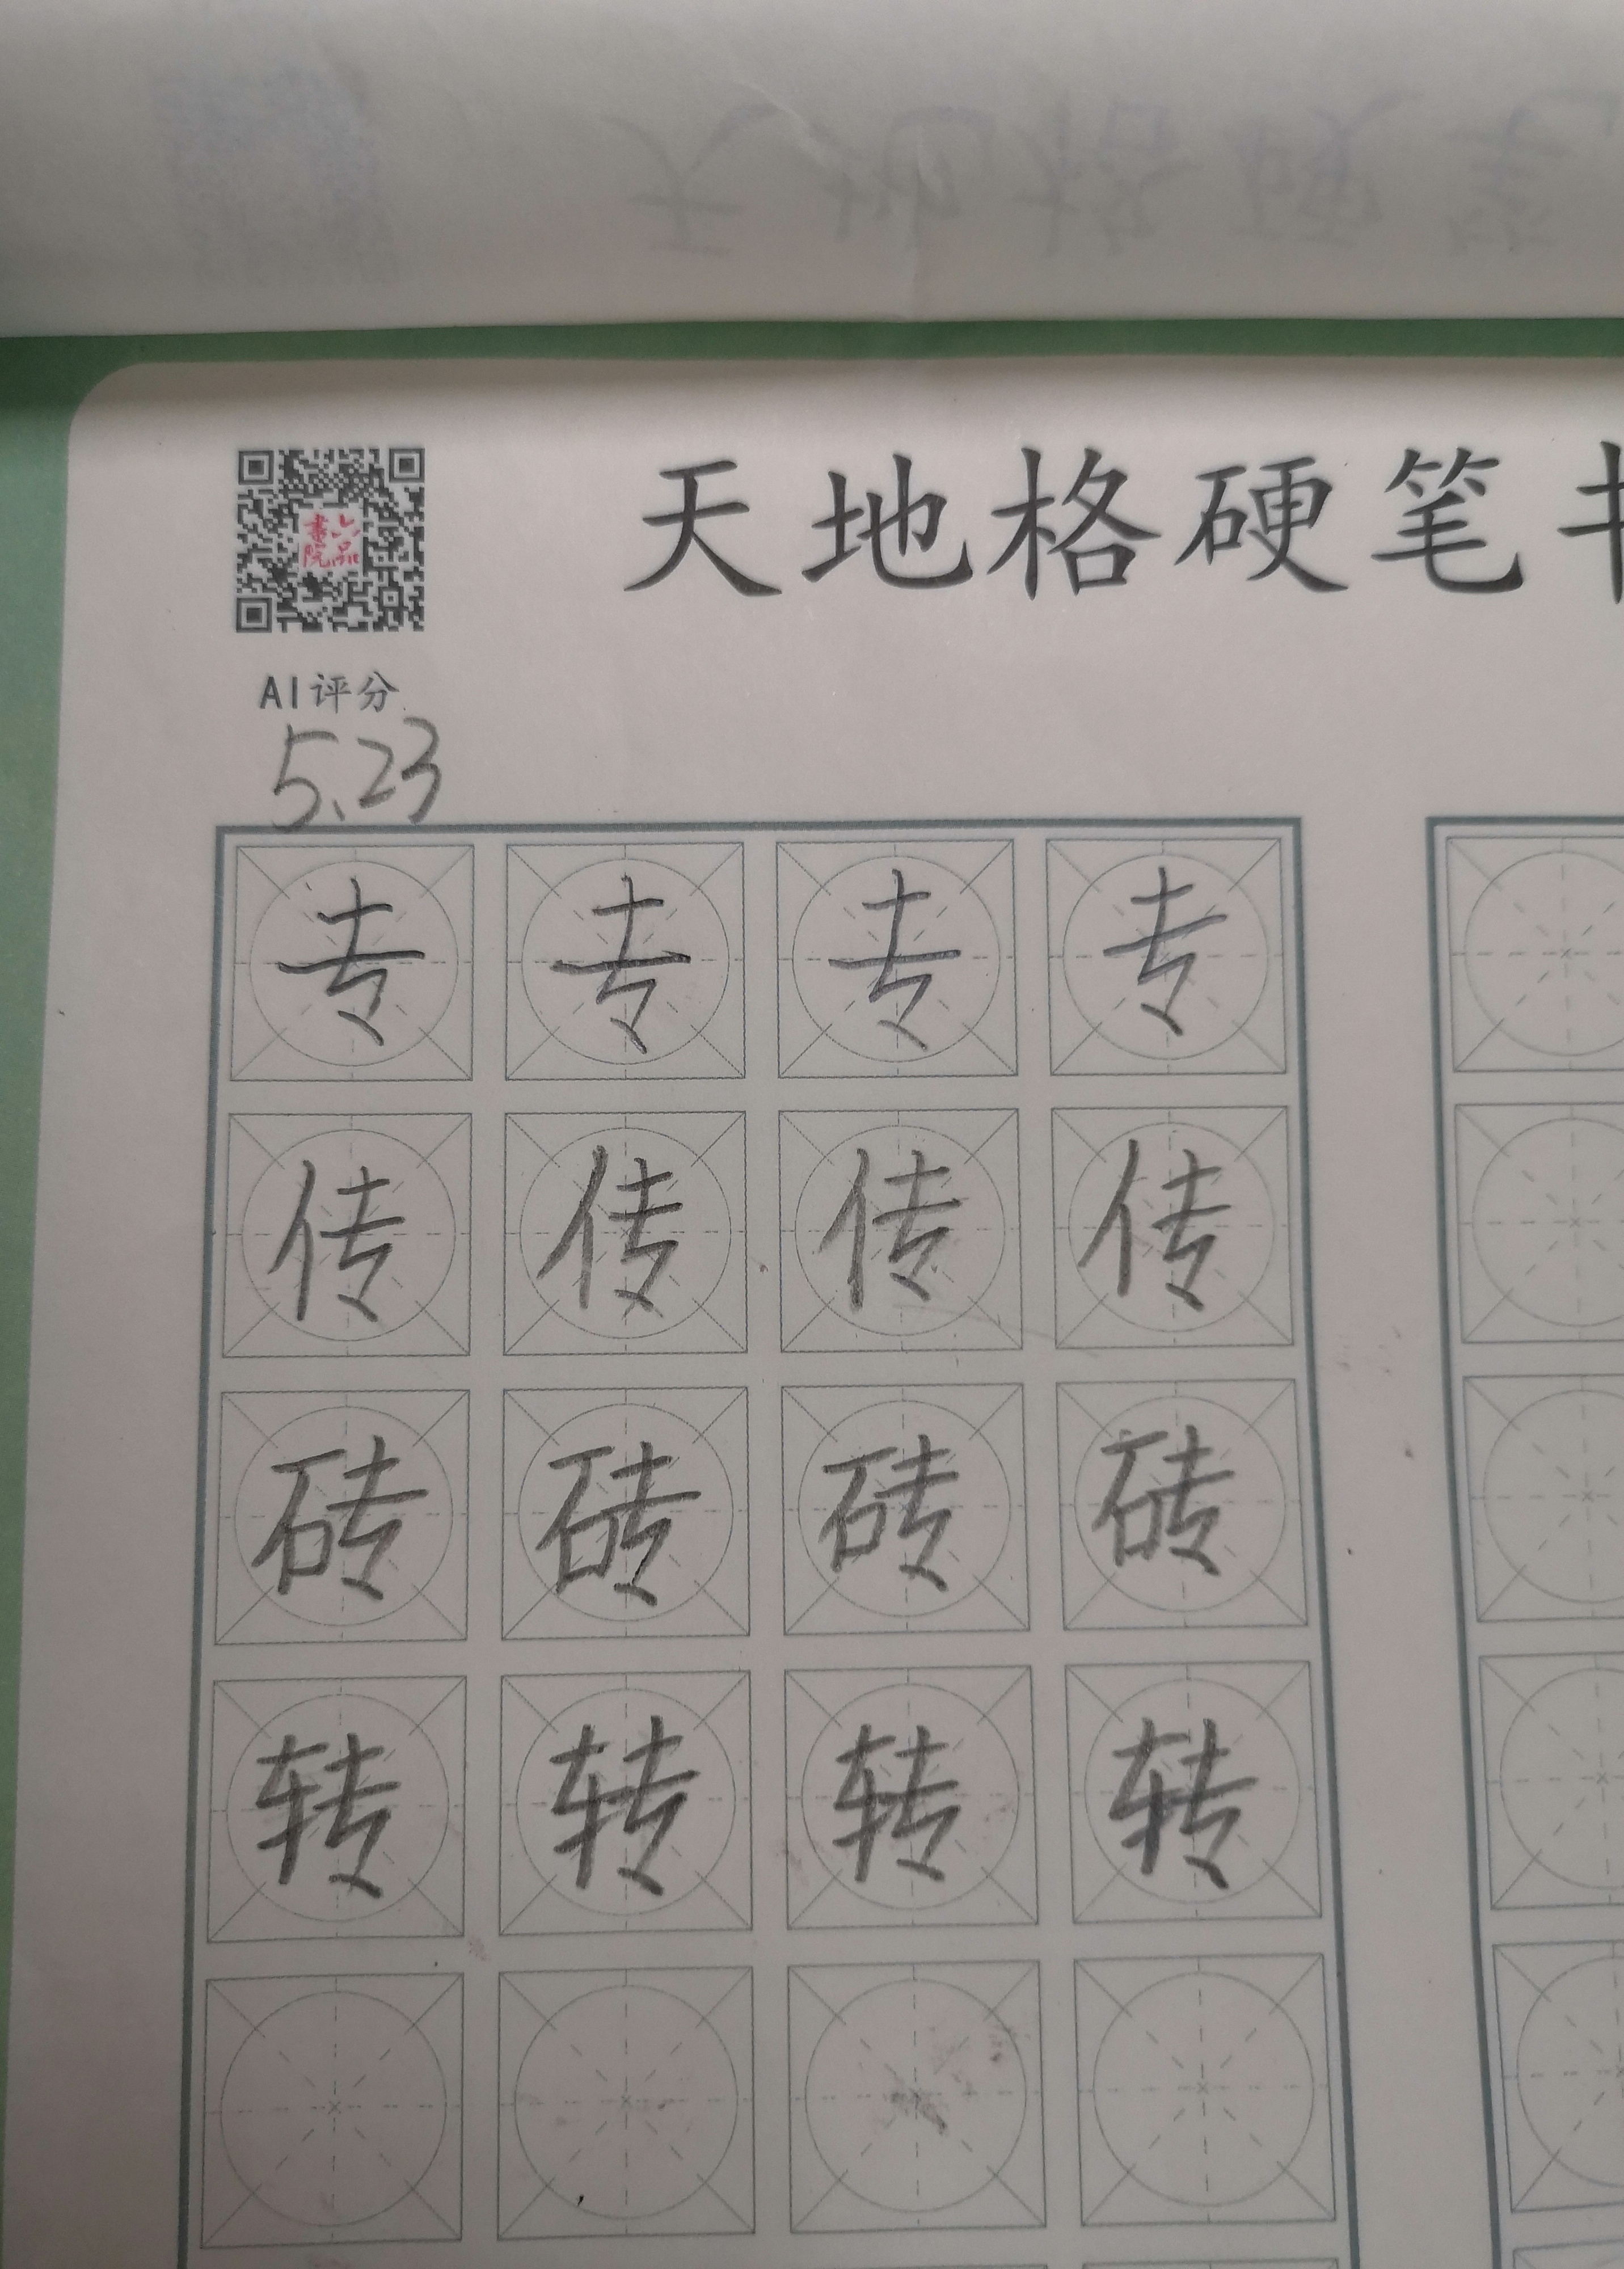 天地格硬笔
六品
書院
AI评分
5.23
专 专 专 专
传 传 传 传
砖 砖 砖 砖
转 转 转 转